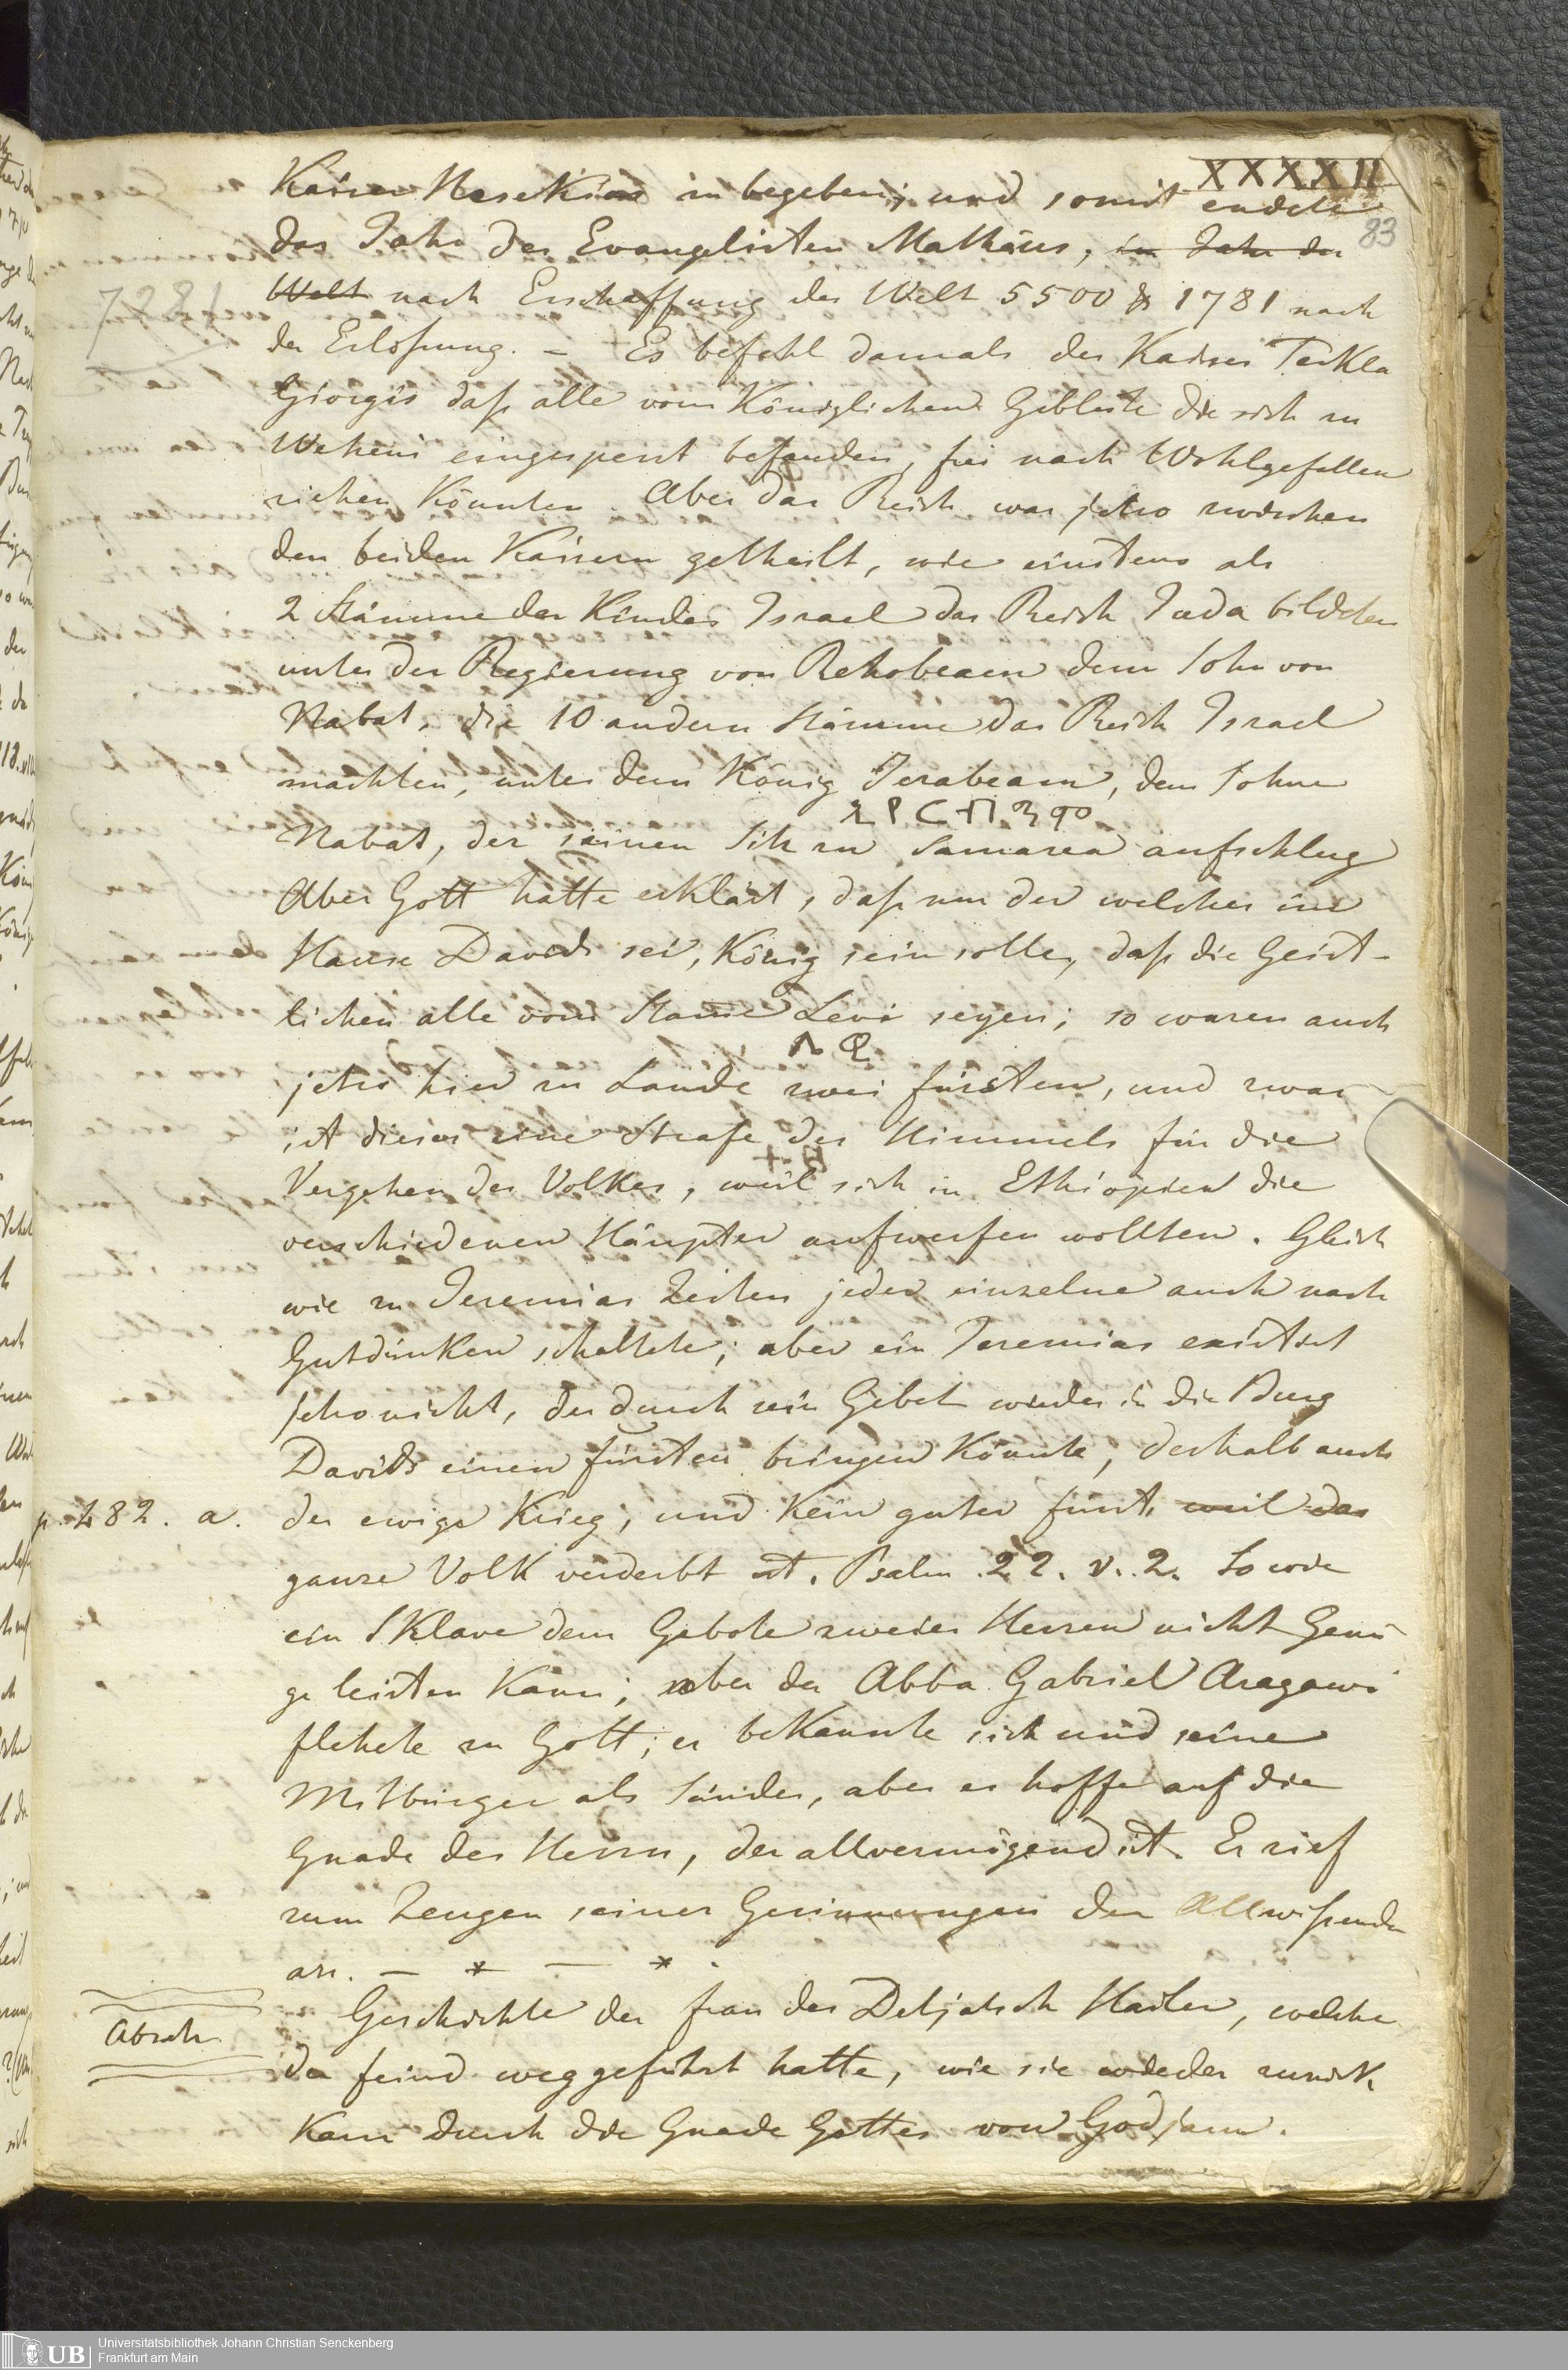 XXXXII
83
Kaiser Hesekias zu begeben; und somit endete
das Jahr des Evangelisten Mathäus, im Jahr der
Welt nach Erschaffung der Welt 5500 & 1781 nach
7281
der Erlosung. – Es befahl damals der Kaiser Teckla
Giorgis daß alle vom Königlichen Geblüte die sich in
Weheni eingesperrt befanden, frei nach Wohlgefallen
ziehen könnten. Aber das Reich war jetzo zwischen
den beiden Kaisern getheilt, wie einstens als
2 Stämme der Kinder Israel das Reich Juda bildeten
unter der Regierung von Rehobeam dem Sohn von
Nabat, die 10 andern Stämme das Reich Israel
machten, unter dem König Jerabeam, dem Sohne
ኢየርብዓም
Nabat, der seinen Sitz in Samarea aufschlug
Aber Gott hatte erklärt, daß nur der welcher im
Hause Davids sei, König sein solle, daß die Geist-
lichen alle vom Stame Levi seyen; so waren auch
ሌዊ
jetzo hier zu Lande zwei fürsten, und zwar
ist dieses eine Strafe des Himmels für die
Vergehen des Volkes, weil sich in Ethiopien die
verschiedenen Häupter aufwerfen wollten. Gleich
wie zu Jeremias Zeiten jeder einzelne auch nach
Gutdünken schaltete; aber ein Jeremias existirt
jetzo nicht, der durch sein Gebet wieder in die Burg
Davids einen fürsten bringen könnte, deshalb auch
p. 282. a.
der ewige Krieg, und kein guter fürst, weil das
ganze Volk verderbt ist. Psalm 22. v. 2. So wie
ein Sklave dem Gebote zweier Herren nicht Genü
ge leisten kann; aber der Abba Gabriel Aragawi
flehete zu Gott; er bekannte sich und seine
Mitbürger als Sünder, aber er hoffe auf die
Gnade des Herrn, der allvermögend ist. Er rief
zum Zeugen seiner Gesinnungen den Allwißenden
an. – * – * .
Absch.
Geschichte der frau des Detjatsch Hailu, welche
der feind weggeführt hatte, wie sie wieder zurück
kam durch die Gnade Gottes von Godjam.
Universitätsbibliothek Johann Christian Senckenberg
Frankfurt am Main
UB